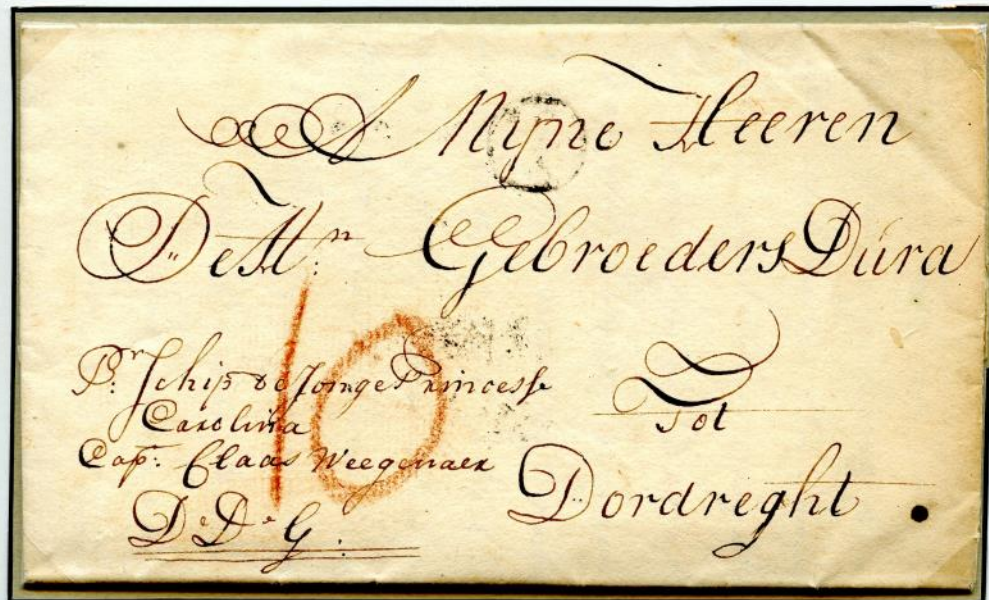 A Mijne Heeren
De Hrn: Gebroeders Dura
Pr: Schip de Jonge Princesse
Carolina
Cap: Claas Weegenaer
D. D. G.
Tot
Dordreght
10